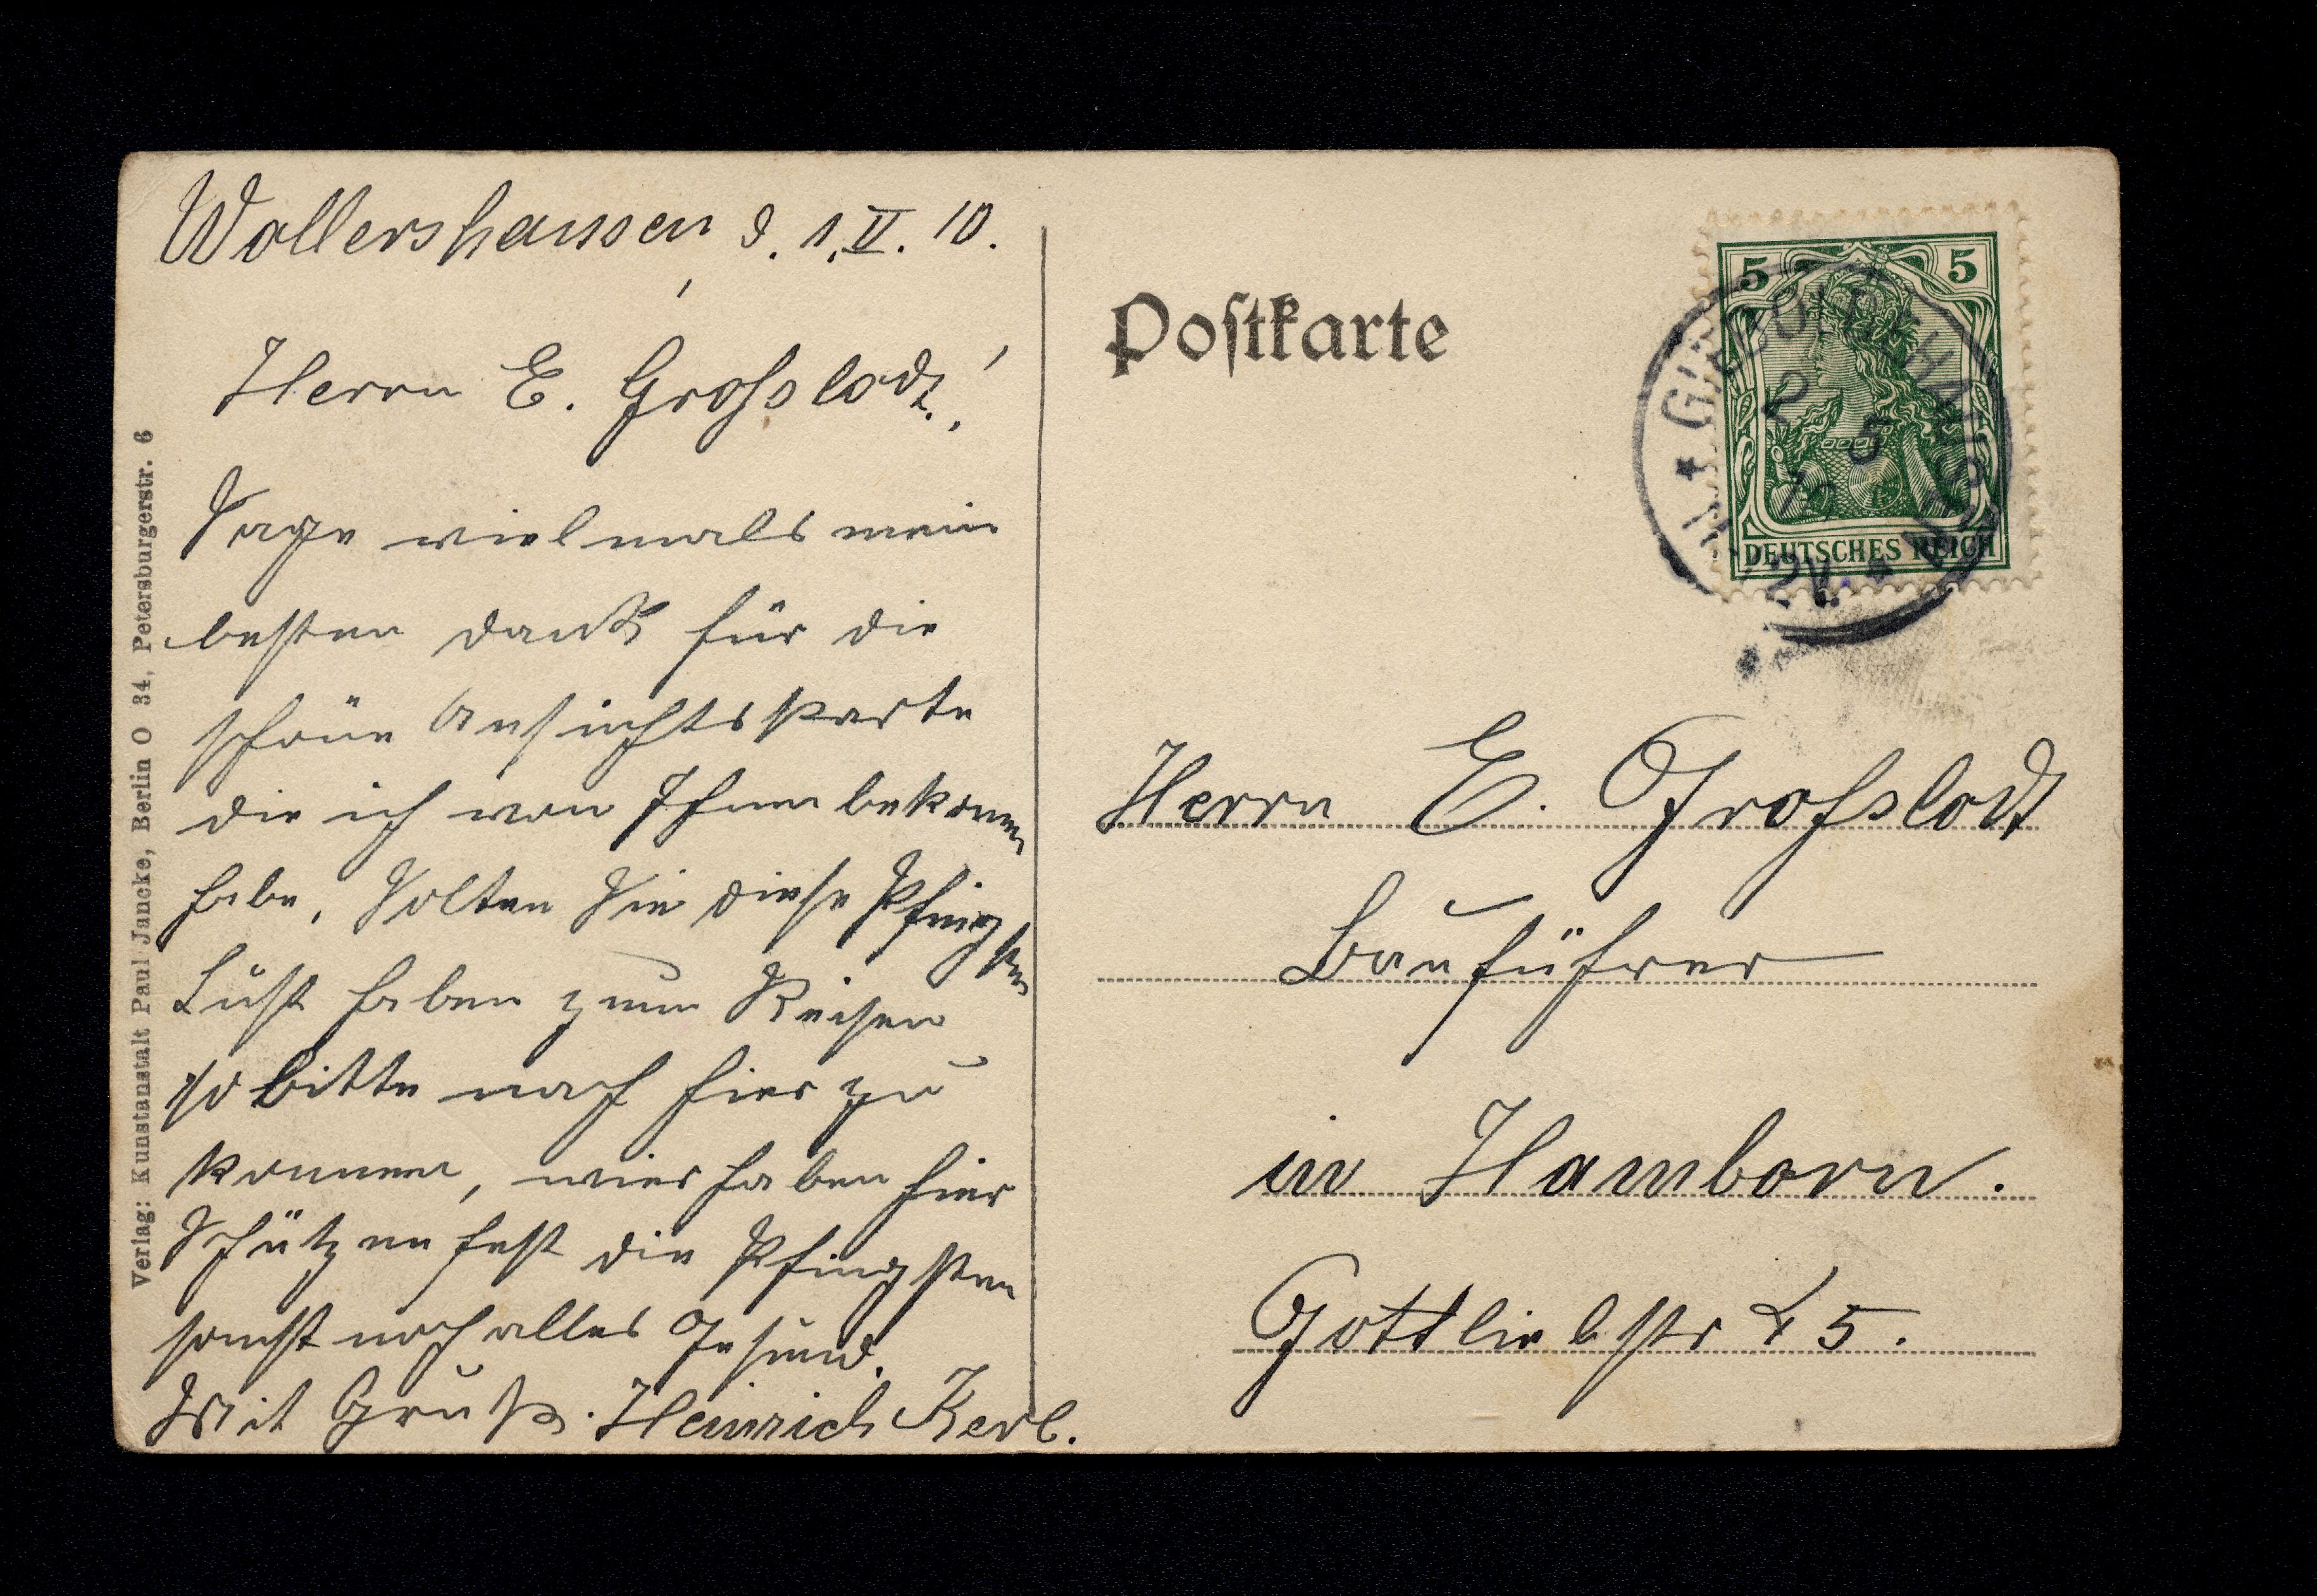 Wollershausen d. 1. V. 10.
Herrn E. Grosslodt!
Sage vielmals mein
besten dank für die
schöne Ansichtskarte
die ich von Ihnen bekomen
habe. Solten Sie diese Pfingsten
Lust haben zum Reisen
so bitte nach hier zu
kommen, wier haben hier
Schützenfest die Pfingsten
sonst noch alles Gesund.
Mit Gruß. Heinrich Kerl.
Verlag: Kunstanstalt Paul Jancke, Berlin O 34, Petersburgerstr. 6
Postkarte
5 5
DEUTSCHES REICH
GIEBOLDEHAUSEN
2 5
Herrn E. Grosslodt
Bauführer
in Hamborn.
Gottliebstr 25.